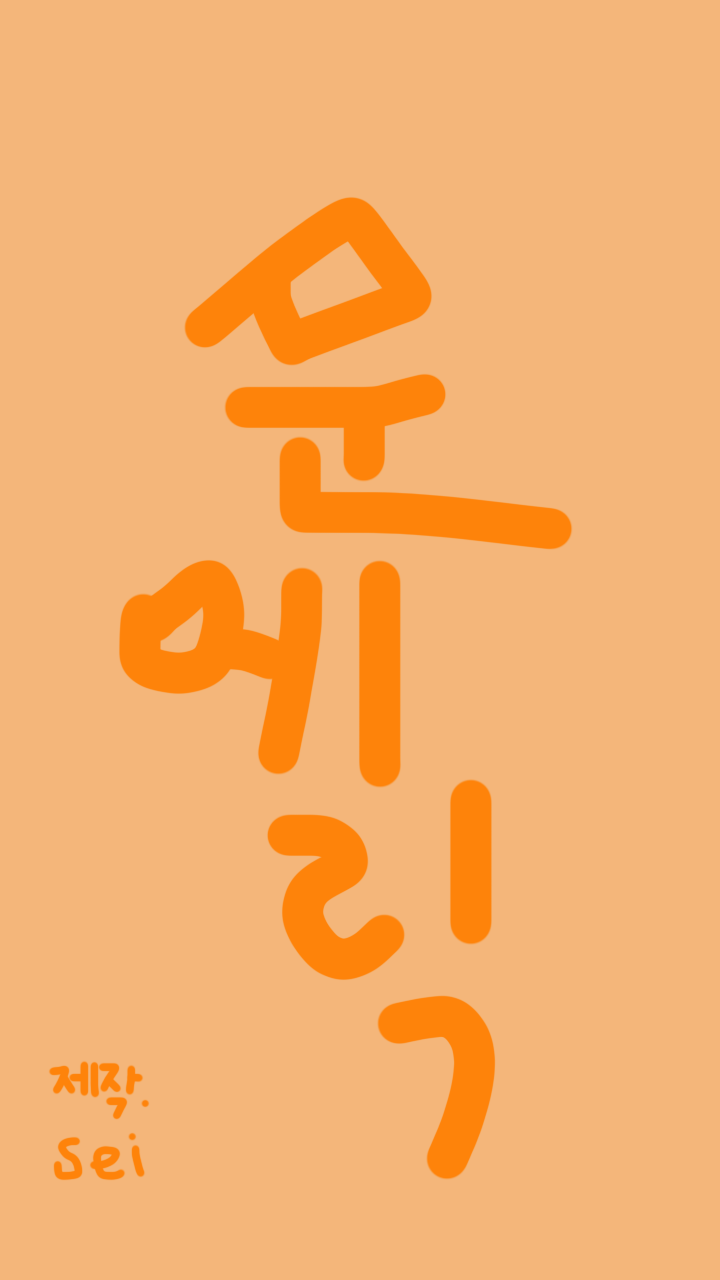 문
에
릭
제작.
sei